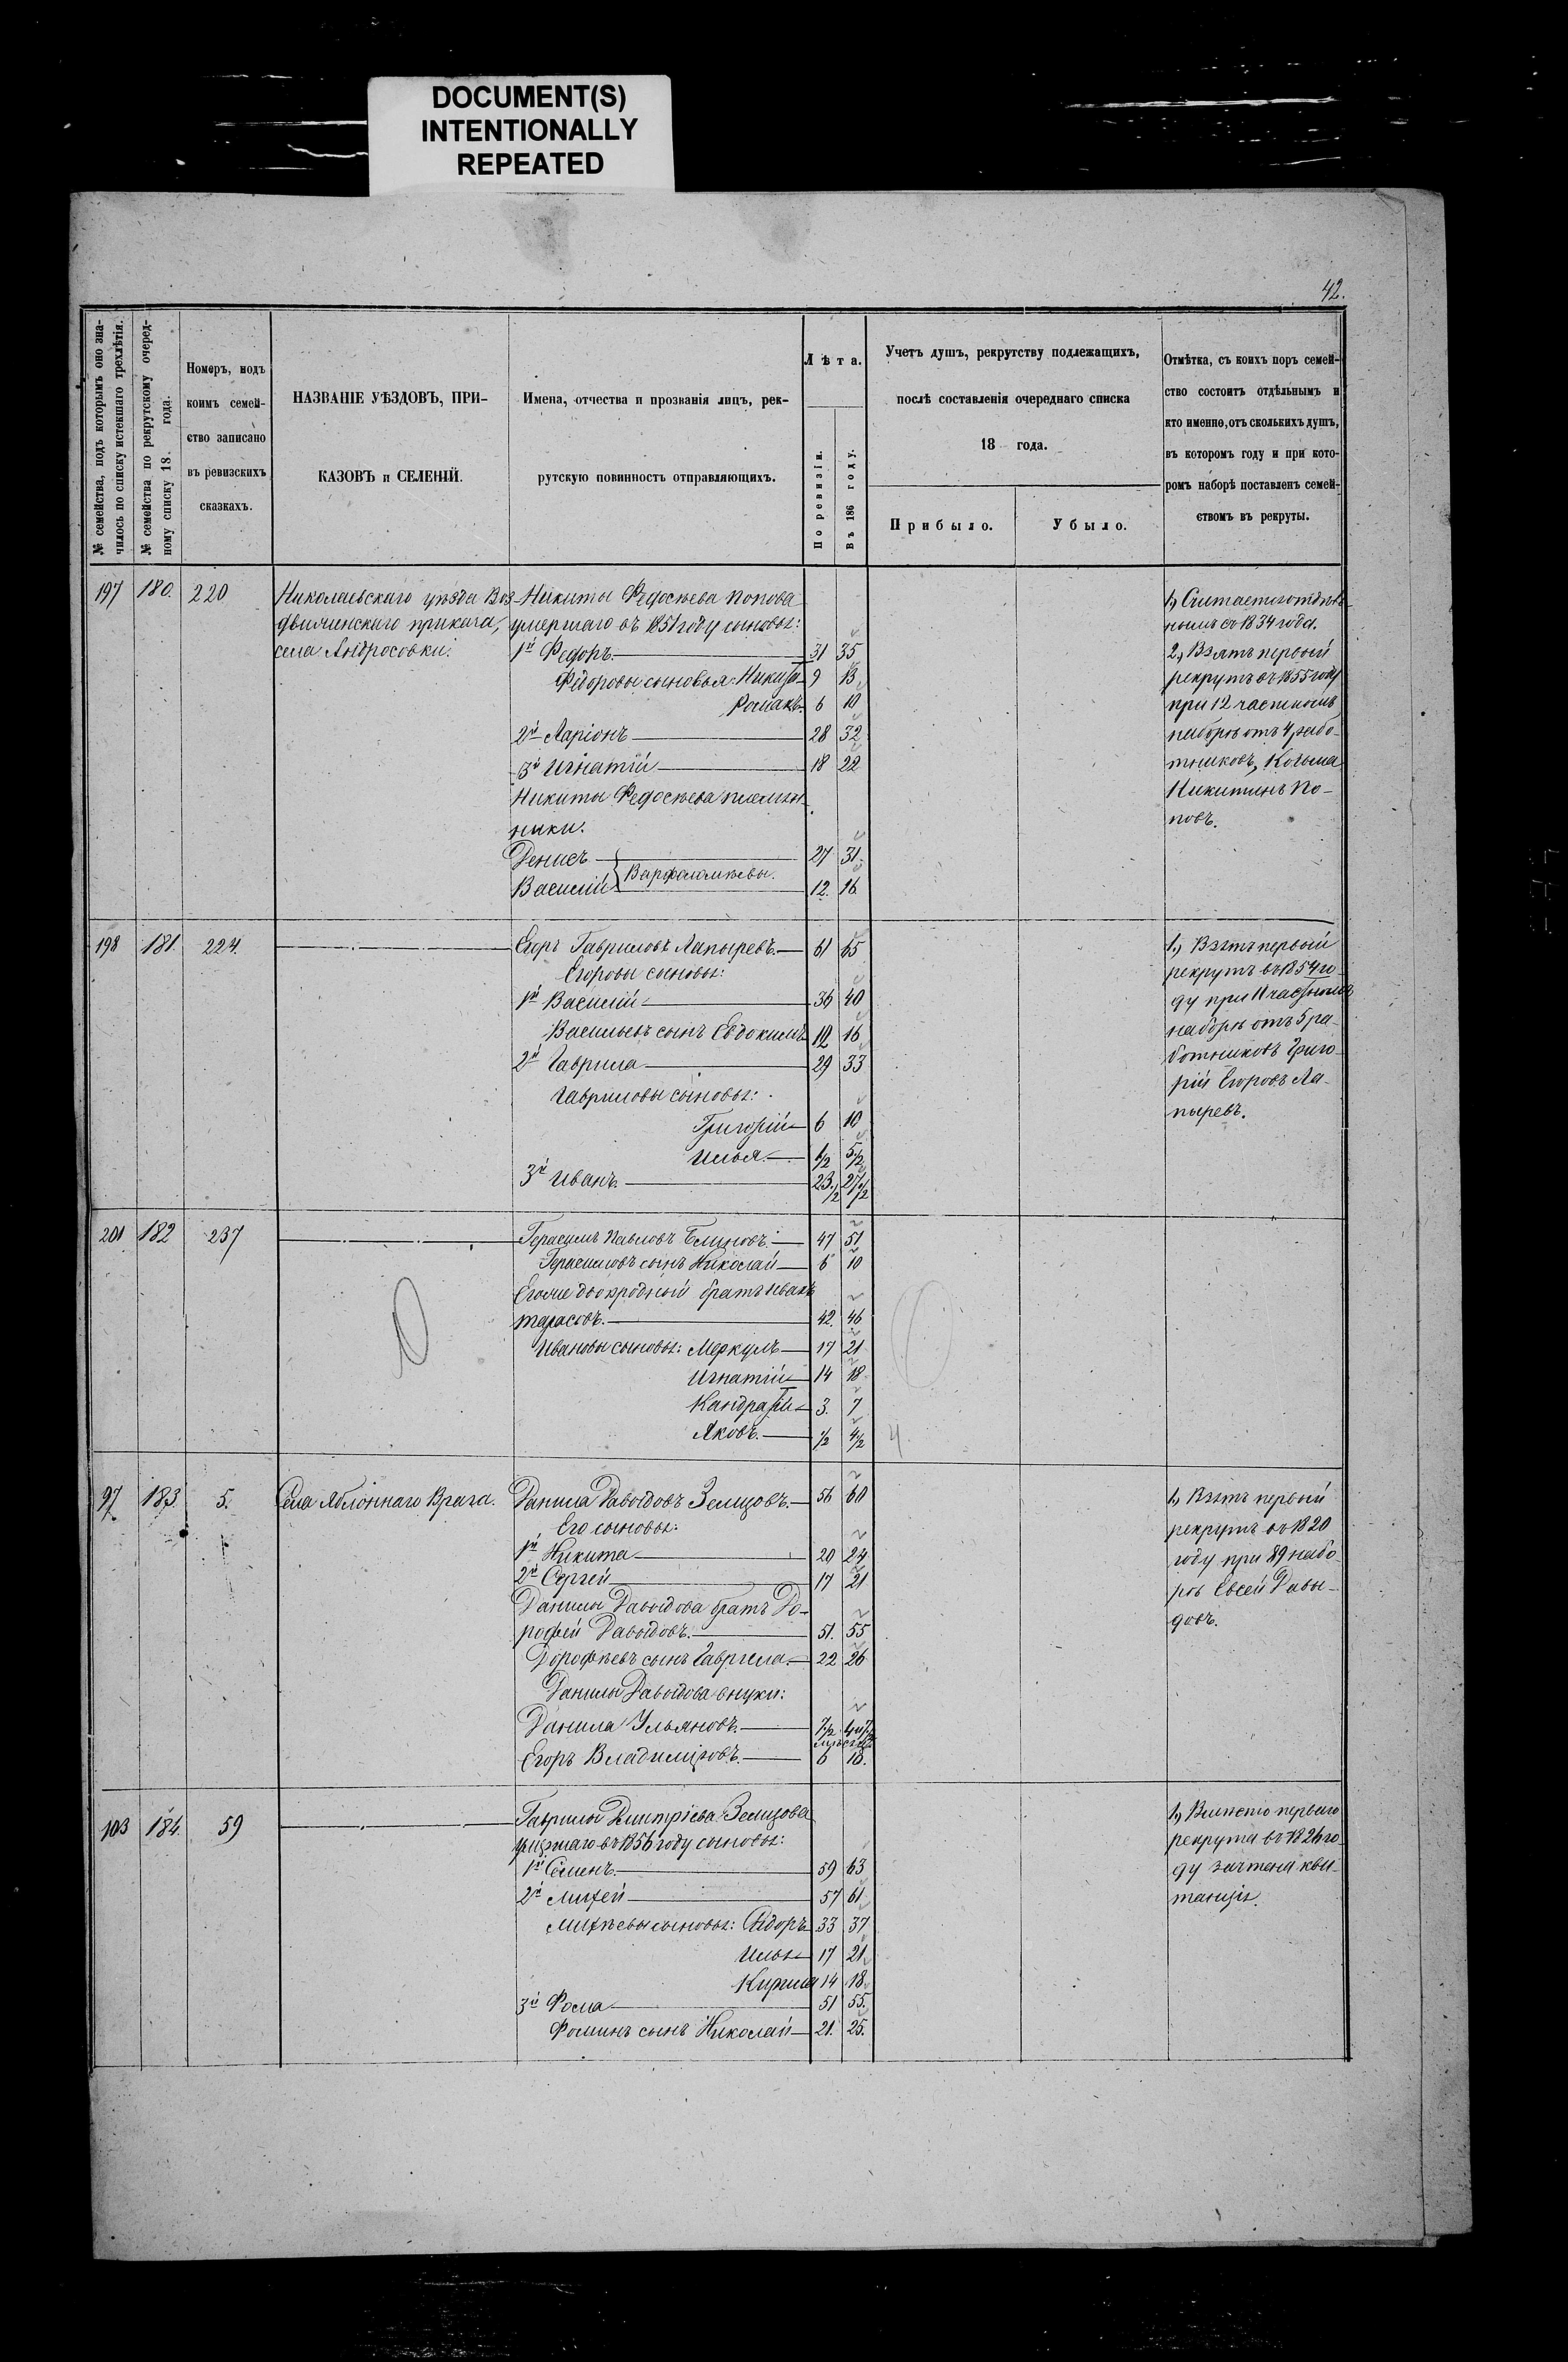 DOCUMENT(S)
INTENTIONALLY
REPEATED
42.
№ семейства, подъ которымъ оно зна-
чилось по списку истекшаго трехлѣтія.
№ семейства по рекрутскому очеред-
ному списку 18. года.
Номеръ, подъ
коимъ семей-
ство записано
въ ревизскихъ
сказкахъ.
НАЗВАНІЕ УѢЗДОВЪ, ПРИ-
КАЗОВЪ и СЕЛЕНІЙ.
Имена, отчества и прозванія лицъ, рек-
рутскую повинность отправляющихъ.
Лѣта.
По ревизіи.
Въ 186 году.
Учетъ душъ, рекрутству подлежащихъ,
послѣ составленія очереднаго списка
18 года.
Прибыло.
Убыло.
Отмѣтка, съ коихъ поръ семей-
ство состоитъ отдѣльнымъ и
кто именно, отъ сколькихъ душъ,
въ которомъ году и при кото-
ромъ наборѣ поставленъ семей-
ствомъ въ рекруты.
197 180. 220
Николаевскаго уѣзда Воз-
движинскаго приказа,
села Андросовки.
Никиты Федосѣева Попова
умершаго въ 1851 году сыновья:
1й Федоръ. 31 35
Федоровы сыновья: Никита 9 13
Романъ. 6 10
2й Ларіонъ 28 32
3й Игнатій 18 22
Никиты Федосѣева племян-
ники.
Денисъ 27 31.
Варфоломѣевы.
Василій 12. 16
1, Считается отдѣль-
нымъ съ 1834 года.
2, Взятъ первый
рекрутъ въ 1855 году
при 12 частномъ
наборѣ отъ 4 рабо-
тниковъ, Козьма
Никитинъ По-
повъ.
198 181. 224.
Егоръ Гавриловъ Лапыревъ. 61 65
Егоровы сыновья:
1й Василій 36 40
Васильевъ сынъ Евдокимъ 12 16
2й Гаврила 29 33
Гавриловы сыновья:
Григорій 6 10
Илья. 1/2 5/2
3й Иванъ. 23.1/2 27 1/2
1, Взятъ первый
рекрутъ въ 1854 го-
ду при 11 частномъ
наборѣ отъ 5 ра-
ботниковъ Григо-
рій Егоровъ Ла-
пыревъ.
201 182 237
Герасимъ Павловъ Блиновъ. 47 51
Герасимовъ сынъ Николай 6 10
Егоже двоюродный братъ Иванъ
Тарасовъ. 42. 46
Ивановы сыновья: Меркулъ 17 21
Игнатій 14 18
Кандратій 3. 7
Яковъ. 1/2 4/2
4
97 183. 5.
Села Яблоннаго Врага.
Данила Давыдовъ Землцовъ. 56 60
Его сыновья:
1й Никита 20 24
2й Сергей 17 21
Данилы Давыдова братъ До-
рофей Давыдовъ. 51. 55
Дорофѣевъ сынъ Гаврила. 22 26
Данилы Давыдова внуки:
Данила Ульяновъ.
Егоръ Владиміровъ. 6 10.
1, Взятъ первый
рекрутъ въ 1820
году при 89 набо-
рѣ Евсей Давы-
довъ.
103 184. 59
Гаврилы Дмитріева Землцова
умершаго въ 1856 году сыновья:
1й Семенъ. 59 63
2й Михей 57 61
Михѣевы сыновья: Федоръ 33 37
Илья 17 21
Кирила 14 18
3й Фома 51 55.
Фоминъ сынъ Николай 21. 25.
1, Вмѣсто перваго
рекрута въ 1826 го-
ду зачтена кви-
танція.